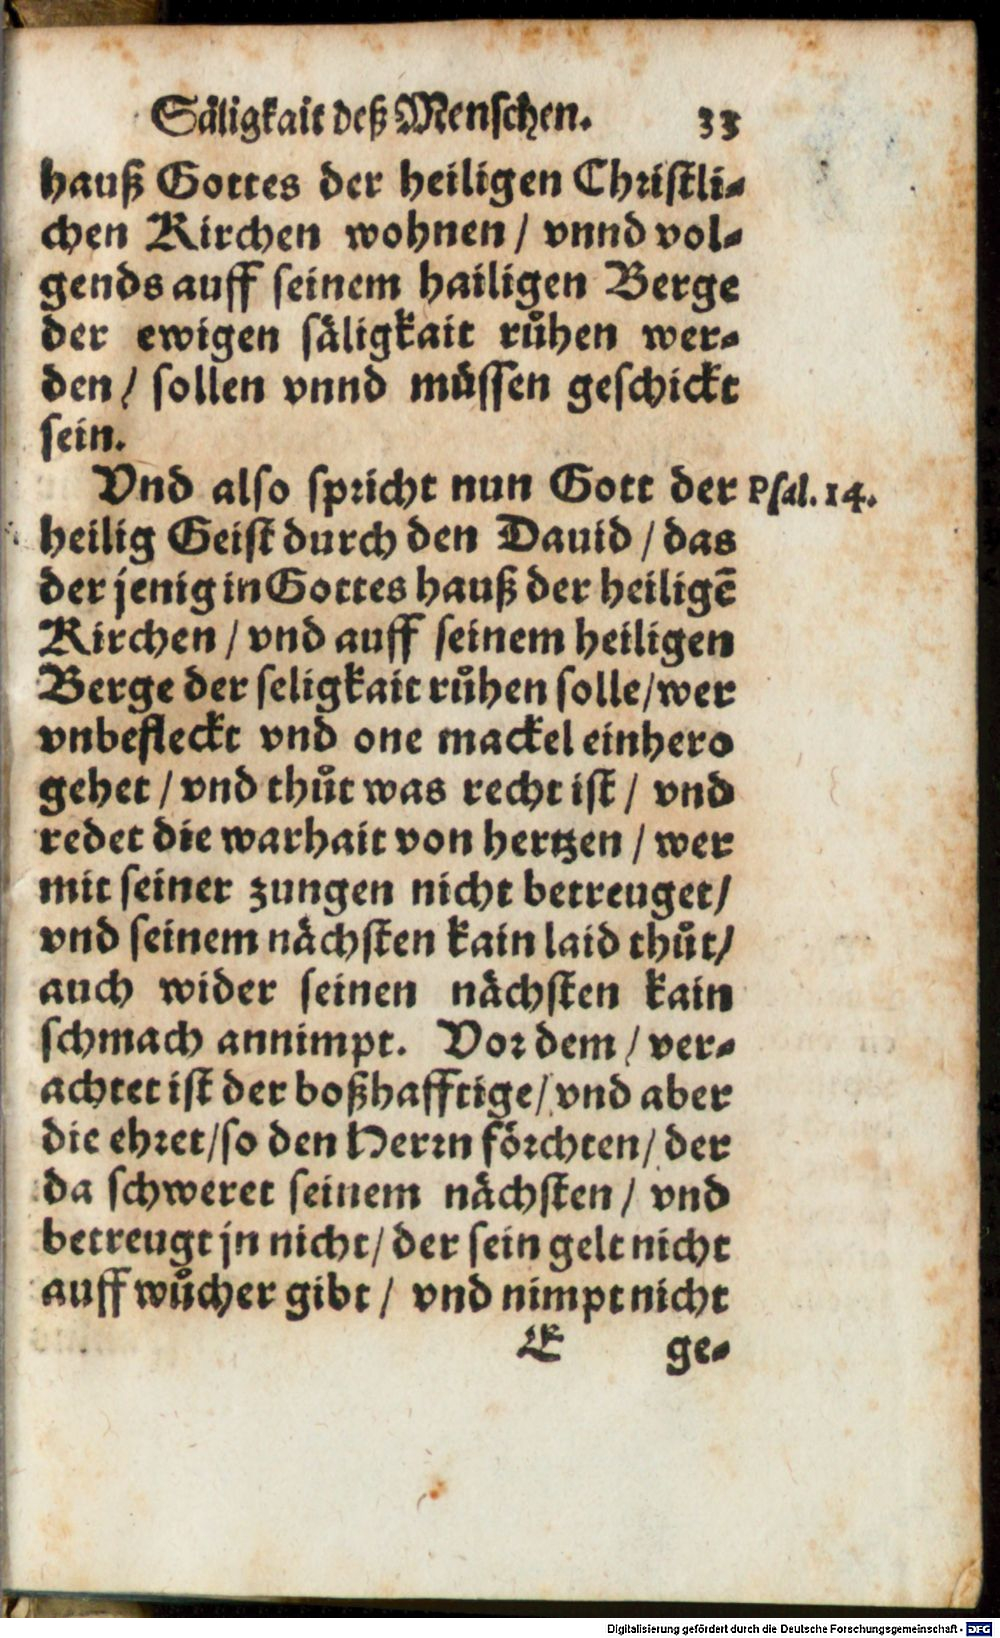 Säligkait deß Menschen. 33
hauß Gottes der heiligen Christli-
chen Kirchen wohnen / vnnd vol-
gends auff seinem hailigen Berge
der ewigen säligkait růhen wer-
den / sollen vnnd müssen geschickt
sein.
Vnd also spricht nun Gott der Psal. 14.
heilig Geist durch den Dauid / das
der jenig in Gottes hauß der heiligẽ
Kirchen / vnd auff seinem heiligen
Berge der seligkait růhen solle / wer
vnbefleckt vnd one mackel einhero
gehet / vnd thůt was recht ist / vnd
redet die warhait von hertzen / wer
mit seiner zungen nicht betreuget /
vnd seinem nächsten kain laid thůt /
auch wider seinen nächsten kain
schmach annimpt. Vor dem / ver-
achtet ist der boßhafftige / vnd aber
die ehret / so den Herrn förchten / der
da schweret seinem nächsten / vnd
betreugt jn nicht / der sein gelt nicht
auff wůcher gibt / vnd nimpt nicht
E ge-
Digitalisierung gefördert durch die Deutsche Forschungsgemeinschaft - DFG